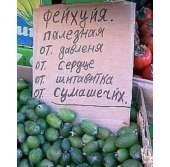 фейхуйя.
палезная
от. давленя
от сердце
от шитавитка
от. сумашечих.